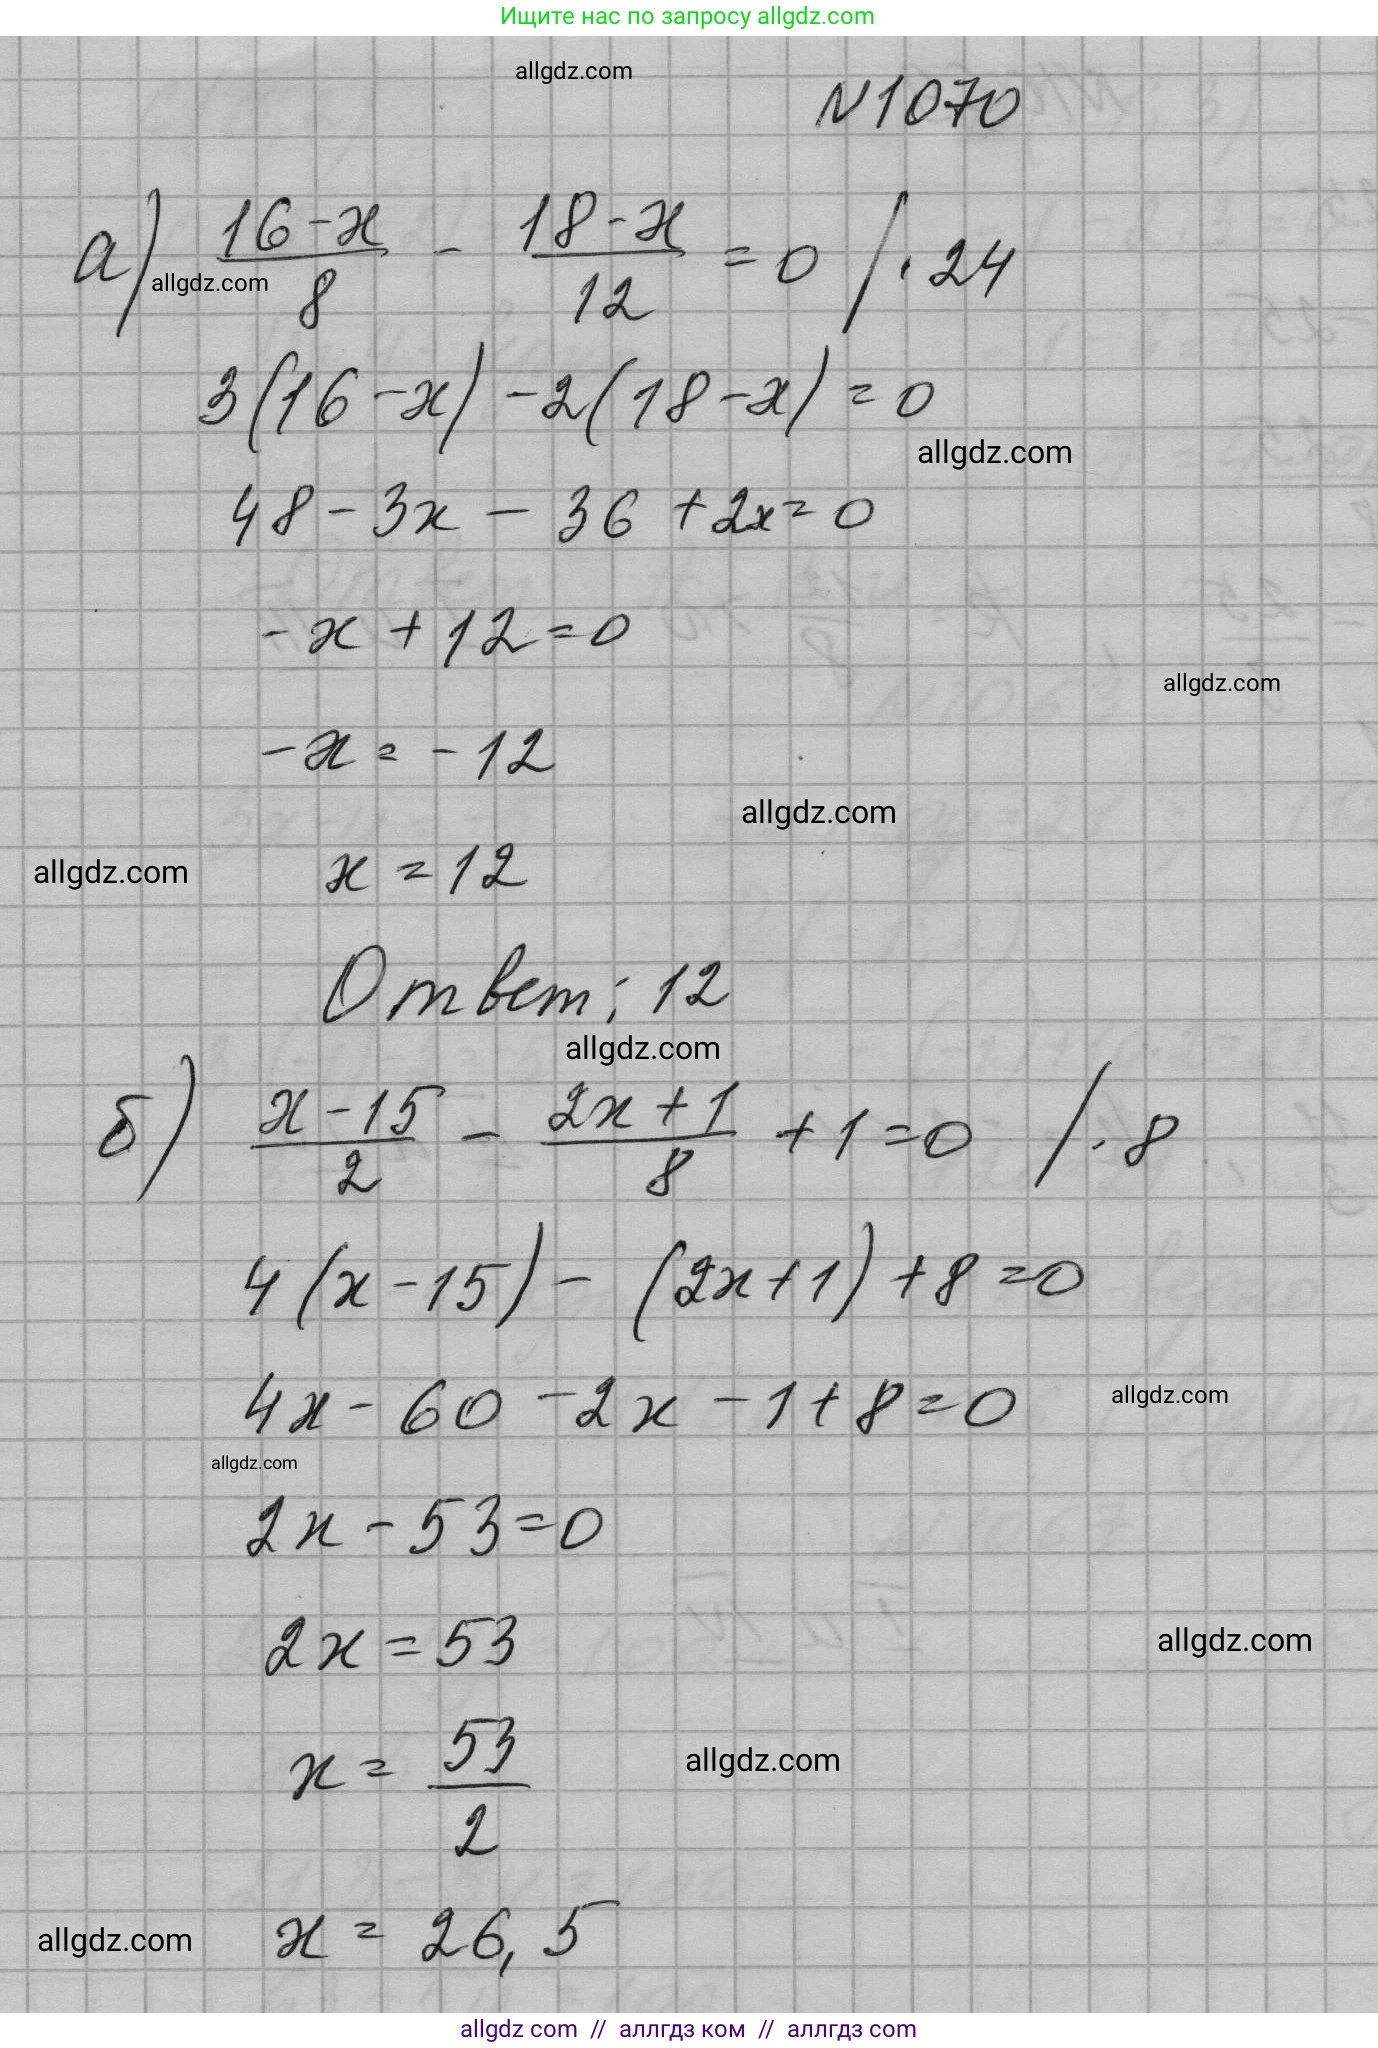 Ищите нас по запросу allgdz.com
allgdz.com
N1070
а) (16-x)/8 - (18-x)/12 = 0 /·24
allgdz.com
3(16-x) -2(18-x) = 0
allgdz.com
48 - 3x - 36 + 2x = 0
-x + 12 = 0
allgdz.com
-x = -12
allgdz.com
allgdz.com
x = 12
Ответ: 12
allgdz.com
б) (x-15)/2 - (2x+1)/8 + 1 = 0 /·8
4(x-15) - (2x+1) + 8 = 0
4x - 60 - 2x - 1 + 8 = 0
allgdz.com
allgdz.com
2x - 53 = 0
2x = 53
allgdz.com
x = 53/2
allgdz.com
allgdz.com
x = 26,5
allgdz com // аллгдз ком // аллгдз com